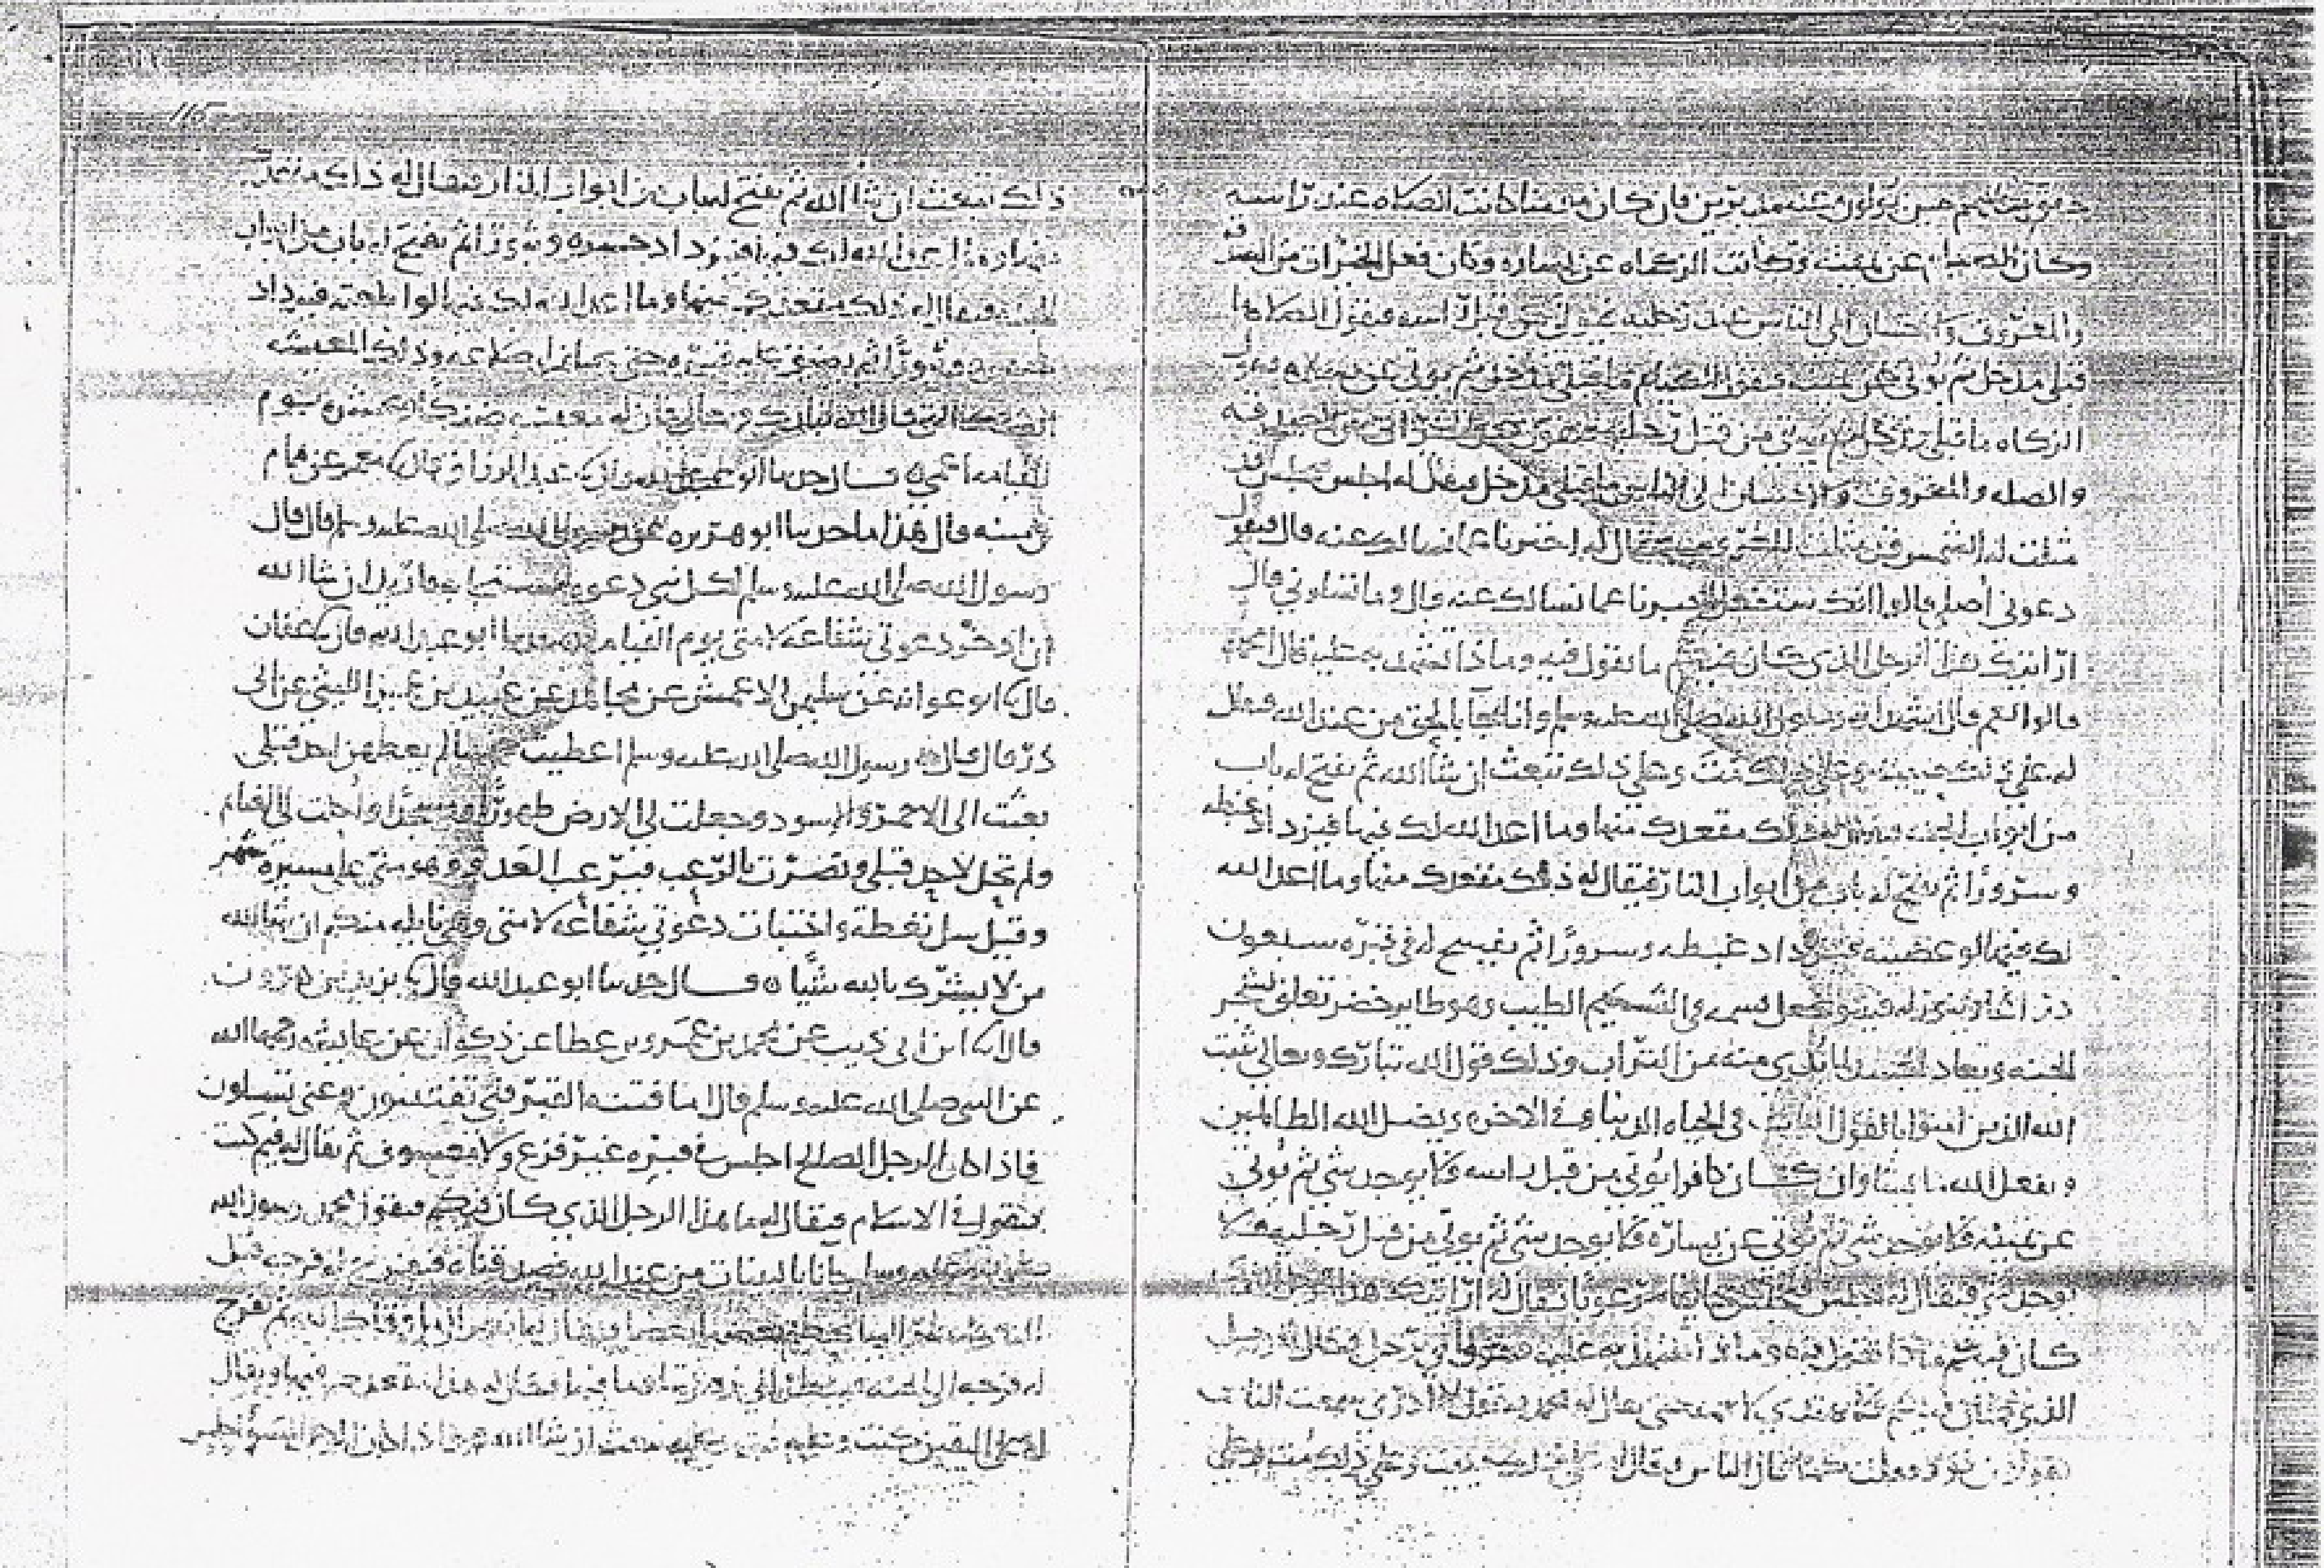 خفق نعالهم حين يولون عنه مدبرين فان كان مومنا كانت الصلاه عند راسه
وكان الصيام عن يمينه وكانت الزكاه عن يساره وكان فعل الخيرات من الصدقه
والمعروف والاحسان الى الناس عند رجليه فيوتى من قبل راسه فيقول الصلاه ما
قبلي مدخل ثم يوتى عن يمينه فيقول الصيام ما قبلي مدخل ثم يوتى عن يساره فيقول
الزكاه ما قبلي مدخل ثم يوتى من قبل رجليه فيقول فعل الخيرات من الصدقه
والصله والمعروف والاحسان الى الناس ما قبلي مدخل فيقال له اجلس فيجلس قد
مثلت له الشمس قد للغروب فيقال له اخبرنا عما نسالك عنه قال فيقول
دعوني اصلي قالوا انك ستفعل اخبرنا عما نسالك عنه قال وما تسلوني قال
ارايتك هذا الرجل الذي كان فيكم ما تقول فيه وماذا تشهد به عليه قال امحمد
قالوا نعم قال اشهد انه رسول الله صلى الله عليه وسلم وانه جا بالحق من عند الله فيقال
له على ذلك حييت وعلى ذلك مت وعلى ذلك تبعث ان شا الله ثم يفتح له باب
من ابواب الجنه فيقال له ذلك مقعدك منها وما اعد الله لك فيها فيزداد غبطه
وسرورا ثم يفتح له باب من ابواب النار فيقال له ذلك مقعدك منها وما اعد الله
لك فيها لو عصيته فيزداد غبطه وسرورا ثم يفسح له في قبره سبعون
ذراعا وينور له فيه وتجعل نسمته في النسيم الطيب وهو طاير خضر تعلق بشجر
الجنه ويعاد الجسد لما بدي منه من التراب وذلك قول الله تبارك وتعالى يثبت
الله الذين امنوا بالقول الثابت في الحياه الدنيا وفي الاخره ويضل الله الظالمين
ويفعل الله ما يشا وان كان كافرا يوتى من قبل راسه فلا يوجد شي ثم يوتى
عن يمينه فلا يوجد شي ثم يوتى عن يساره فلا يوجد شي ثم يوتى من قبل رجليه فلا
يوجد شي فيقال له اجلس فيجلس خايفا مرعوبا فيقال له ارايتك هذا الرجل الذي
كان فيكم ماذا تقول فيه وماذا تشهد به عليه فيقول اي رجل فيقال الرجل
الذي كان فيكم فلا يهتدي لاسمه حتى يقال له محمد فيقول لا ادري سمعت الناس
يقولون قولا فقلت كما قال الناس فيقال له على ذلك حييت وعلى ذلك مت وعلى
ذلك تبعث ان شا الله ثم يفتح له باب من ابواب النار فيقال له ذلك مقعدك
منها وما اعد الله لك فيها فيزداد حسره وثبورا ثم يفتح له باب من ابواب
الجنه فيقال له ذلك مقعدك منها وما اعد الله لك فيها لو اطعته فيزداد
حسره وثبورا ثم يضيق عليه قبره حتى تختلف اضلاعه وذلك المعيشه
الضنكا التي قال الله تبارك وتعالى فان له معيشه ضنكا ونحشره يوم
القيامه اعمى قال حدثنا ابو عبد الله قال عبد الرزاق قال معمر عن همام
بن منبه قال هذا ما حدثنا ابو هريره عن رسول الله صلى الله عليه وسلم قال قال
رسول الله صلى الله عليه وسلم لكل نبي دعوه تستجاب له فاريد ان شا الله
ان ادخر دعوتي شفاعه لامتي يوم القيامه حدثنا ابو عبد الله قال عفان
قال ابو عوانه عن سليمن الاعمش عن مجاهد عن عبيد بن عمير الليثي عن ابي
ذر قال قال رسول الله صلى الله عليه وسلم اعطيت خمسا لم يعطهن احد قبلي
بعثت الى الاحمر والاسود وجعلت لي الارض طهورا ومسجدا واحلت لي الغنايم
ولم تحل لاحد قبلي ونصرت بالرعب فيرعب العدو وهو مني على مسيره شهر
وقيل سل تعطه واختبات دعوتي شفاعه لامتي وهي نايله منكم ان شا الله
من لا يشرك بالله شيا ٥ قال حدثنا ابو عبد الله قال يزيد بن هرون
قال ابن ابي ذيب عن محمد بن عمرو بن عطا عن ذكوان عن عايشه رحمها الله
عن النبي صلى الله عليه وسلم قال اما فتنه القبر فبي تفتنون وعني تسلون
فاذا كان الرجل الصالح اجلس في قبره غير فزع ولا مشعوف ثم يقال له فيم كنت
فيقول في الاسلام فيقال له ما هذا الرجل الذي كان فيكم فيقول محمد رسول الله
صلى الله عليه وسلم جانا بالبينات من عند الله فصدقناه فيفرج له فرجه قبل
النار فينظر اليها يحطم بعضها بعضا فيقال له انظر الى ما وقاك الله ثم تفرج
له فرجه الى الجنه فينظر الى زهرتها وما فيها فيقال له هذا مقعدك منها ويقال
له على اليقين كنت وعليه مت وعليه تبعث ان شا الله واذا كان الرجل السو اجلس